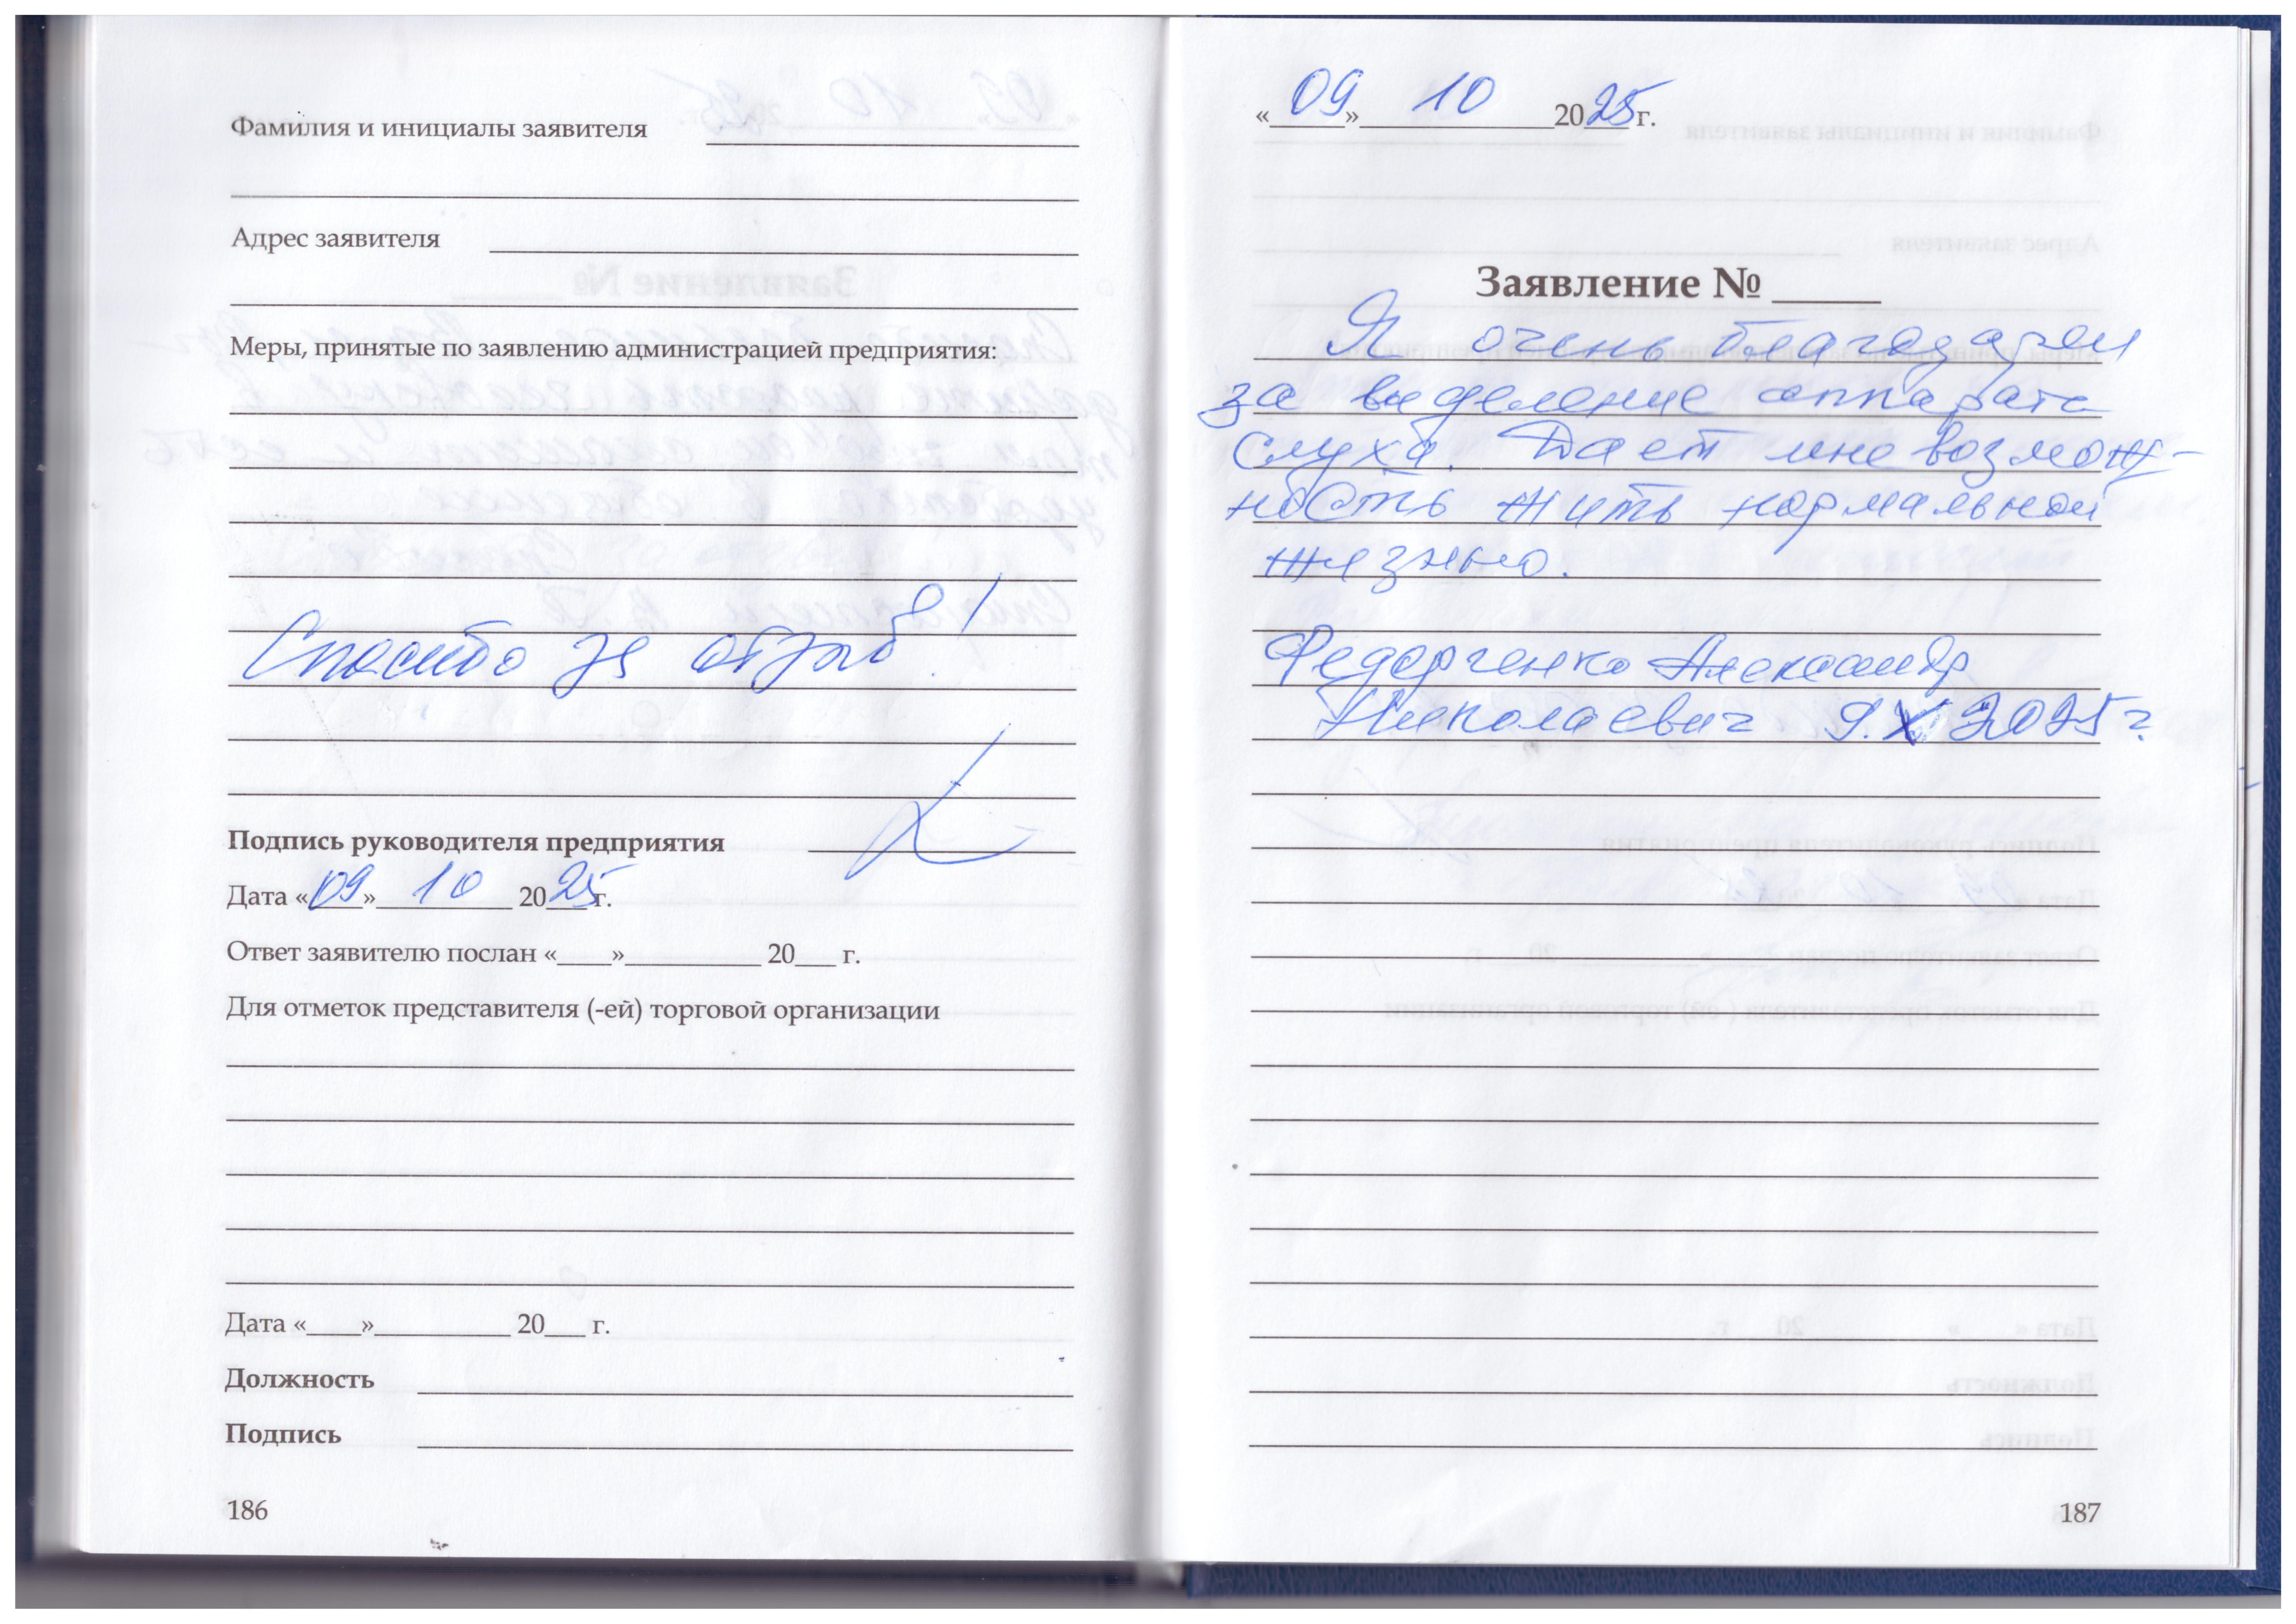 Фамилия и инициалы заявителя
Адрес заявителя
Меры, принятые по заявлению администрацией предприятия:
Спасибо за отзыв!
Подпись руководителя предприятия
Дата «09» 10 2025 г.
Ответ заявителю послан «____»__________ 20___ г.
Для отметок представителя (-ей) торговой организации
Дата «____»__________ 20___ г.
Должность
Подпись
186
«09» 10 2025 г.
Заявление № ____
Я очень благодарен
за выделение аппарата
слуха. Дает мне возмож-
ность жить нормальной
жизнью.
Федорченко Александр
Николаевич 9.X 2025 г
187